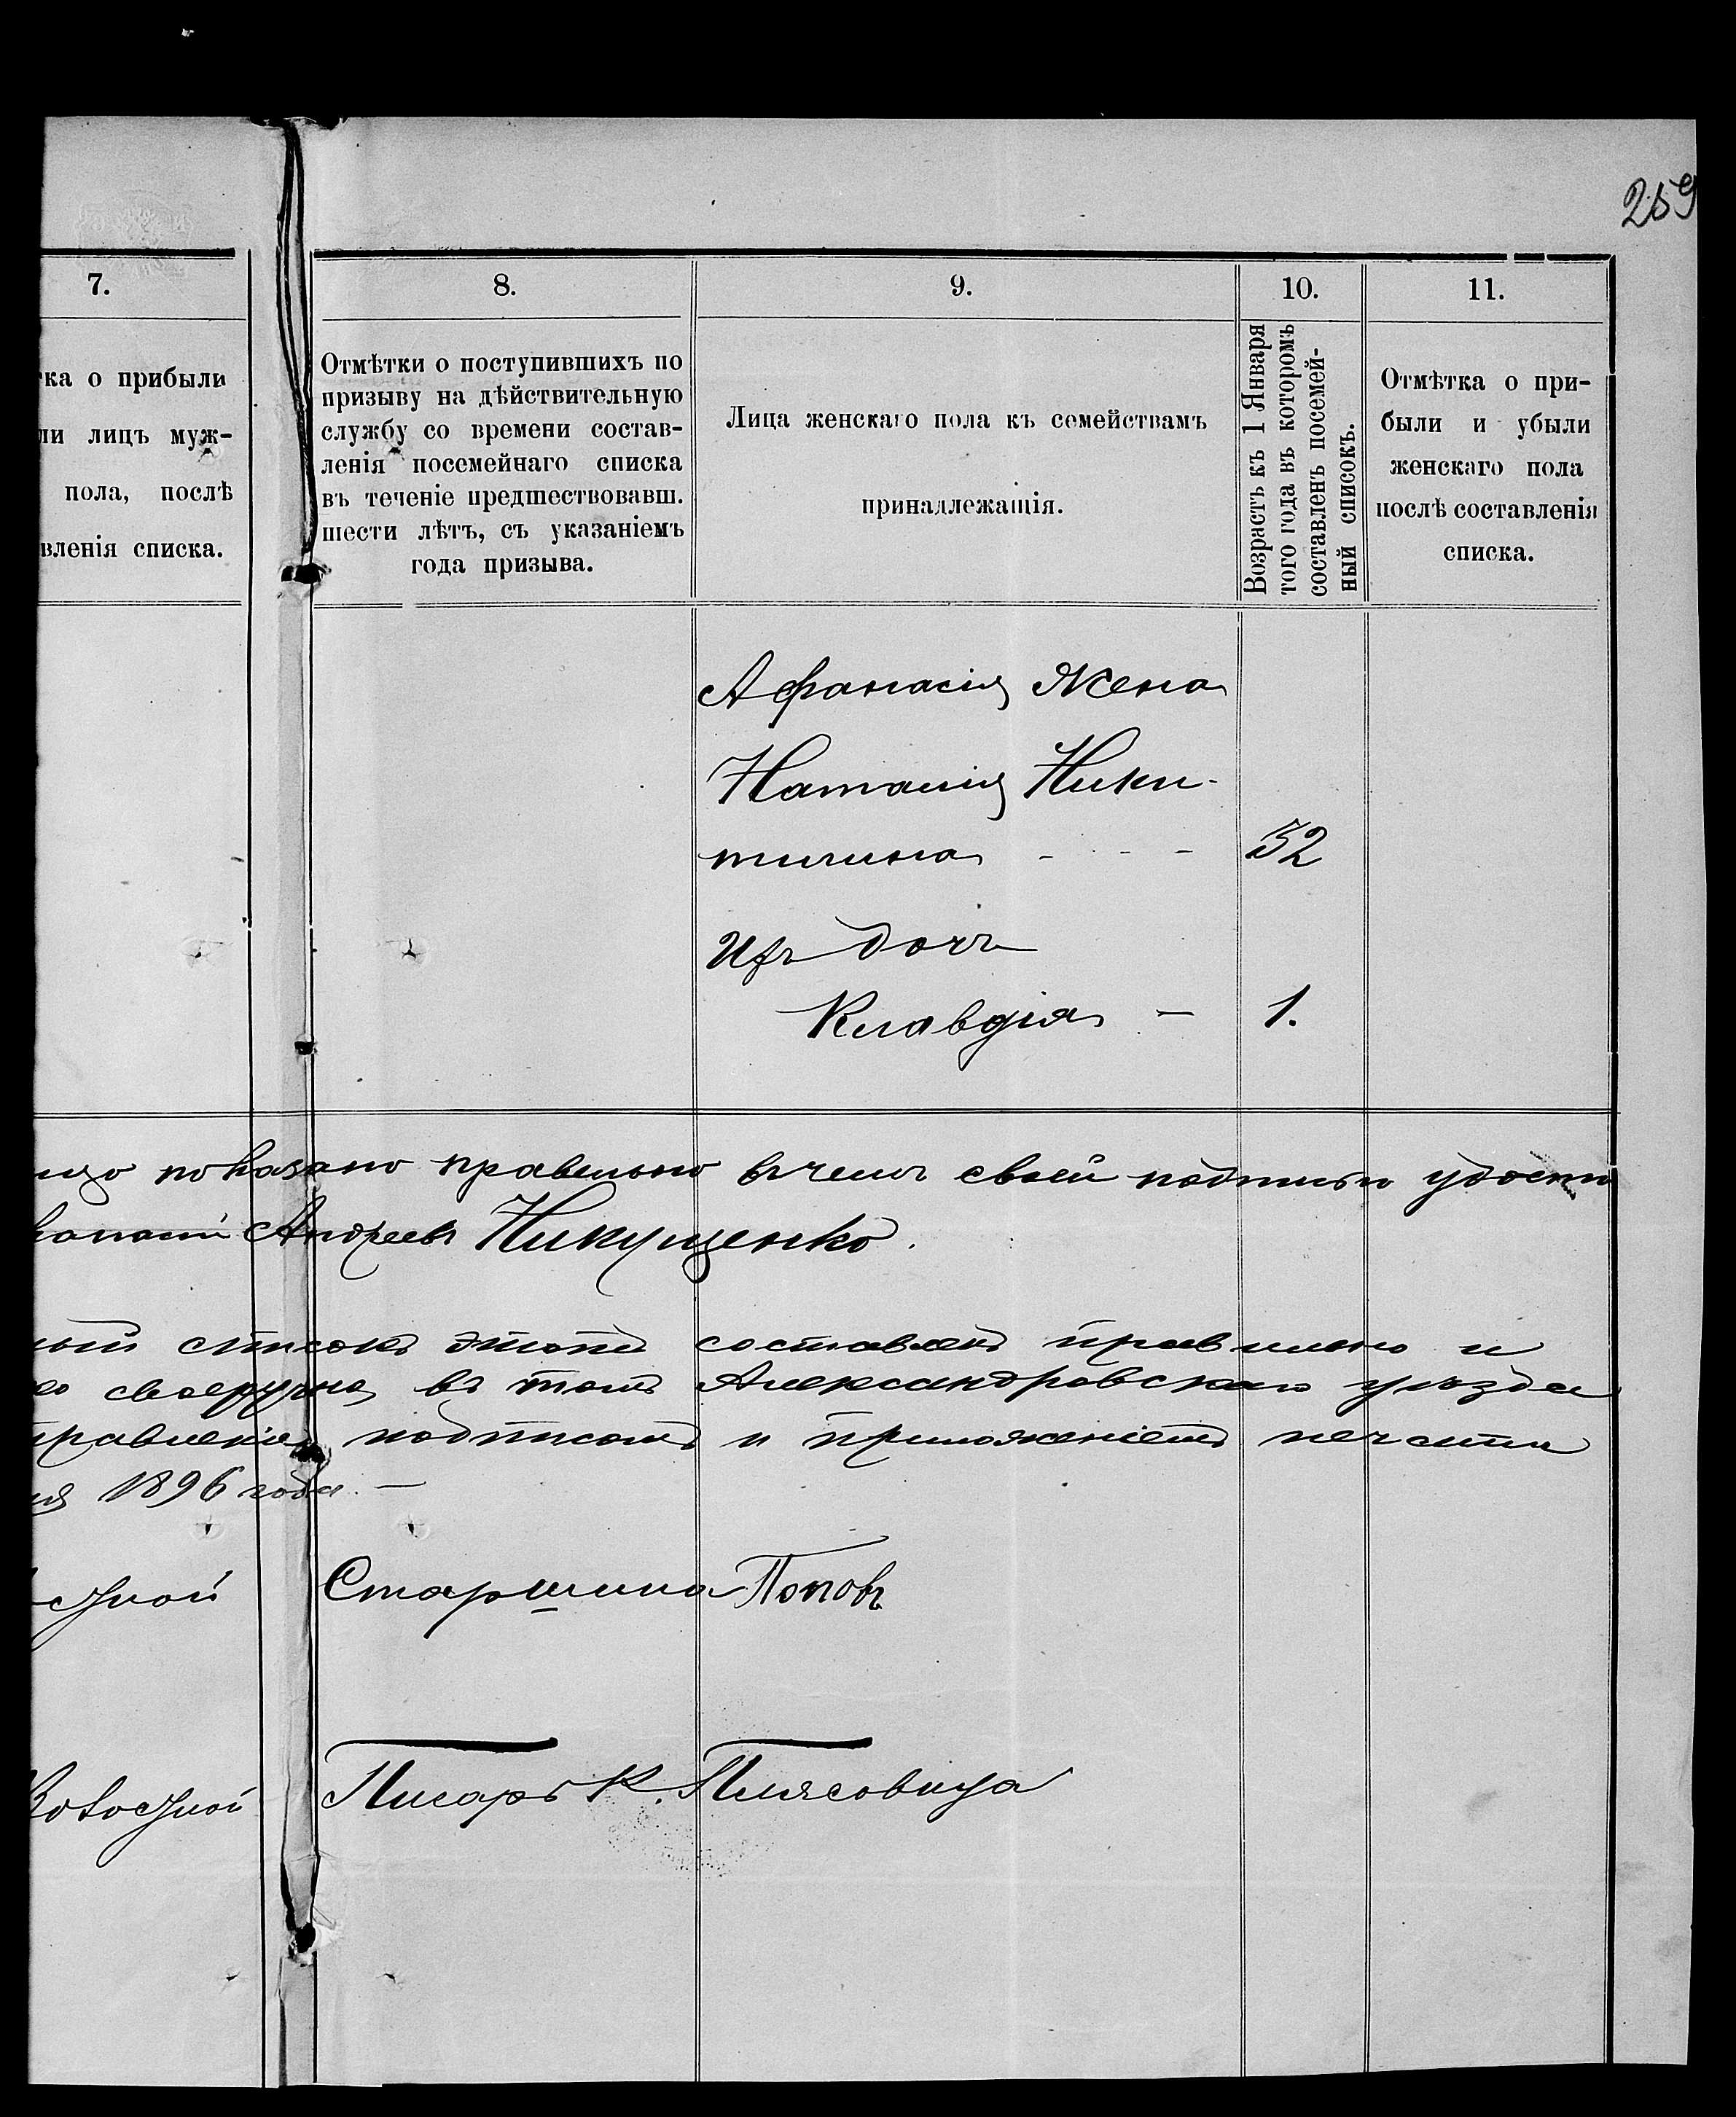 259
7.
ка о прибыли
ли лицъ муж-
пола, послѣ
вленія списка.
8.
Отмѣтки о поступившихъ по
призыву на дѣйствительную
службу со времени состав-
ленія посемейнаго списка
въ теченіе предшествовавш.
шести лѣтъ, съ указаніемъ
года призыва.
9.
Лица женскаго пола къ семействамъ
принадлежащія.
10.
Возрастъ къ 1 Января
того года въ которомъ
составленъ посемей-
ный списокъ.
11.
Отмѣтка о при-
были и убыли
женскаго пола
послѣ составленія
списка.
Афанасія жена
Наталія Ники-
тична - - - 52
Ихъ дочь
Клавдія - 1.
показано правельно въ чемъ своей подписью удосто
Андреевъ Никущенко.
списокъ этотъ составленъ правильно и
своеручна, въ томъ Александровскаго уѣзда
правленіе подписомъ и приложеніемъ печати
1896 года. -
Старшина Поповъ
Волостной Писарь К. Плясовица